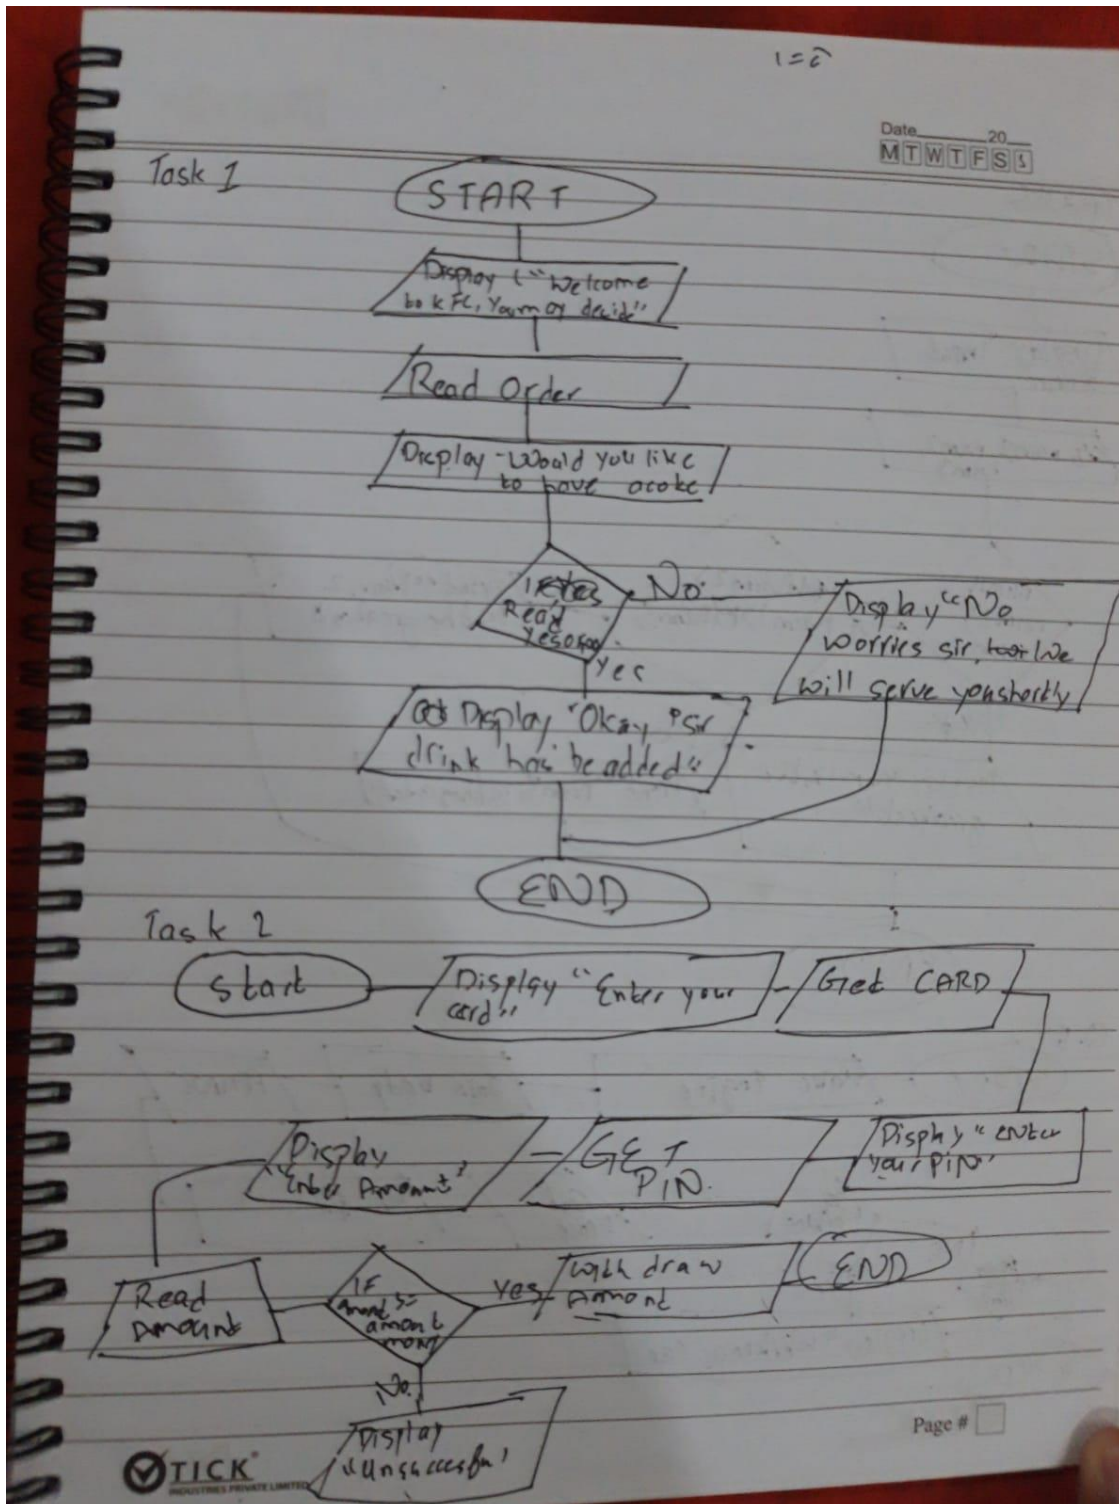 Date 20
M T W T F S S
Task 1
START
Display ("Welcome
to KFC, You may decide"
Read Order
Display - Would you like
to have a coke
Read
No
Yes
Display "No
worries sir, We
will serve you shortly
Display "Okay, sir
drink has be added"
END
Task 2
Start
Display "Enter your
card"
Get CARD
Display "enter
your PIN"
GET
PIN.
Display
"Enter Amount"
Read
Amount
IF
amont
Yes
With draw
Amont
END
No.
Display
"Unsuccesful"
Page #
TICK
INDUSTRIES PRIVATE LIMITED